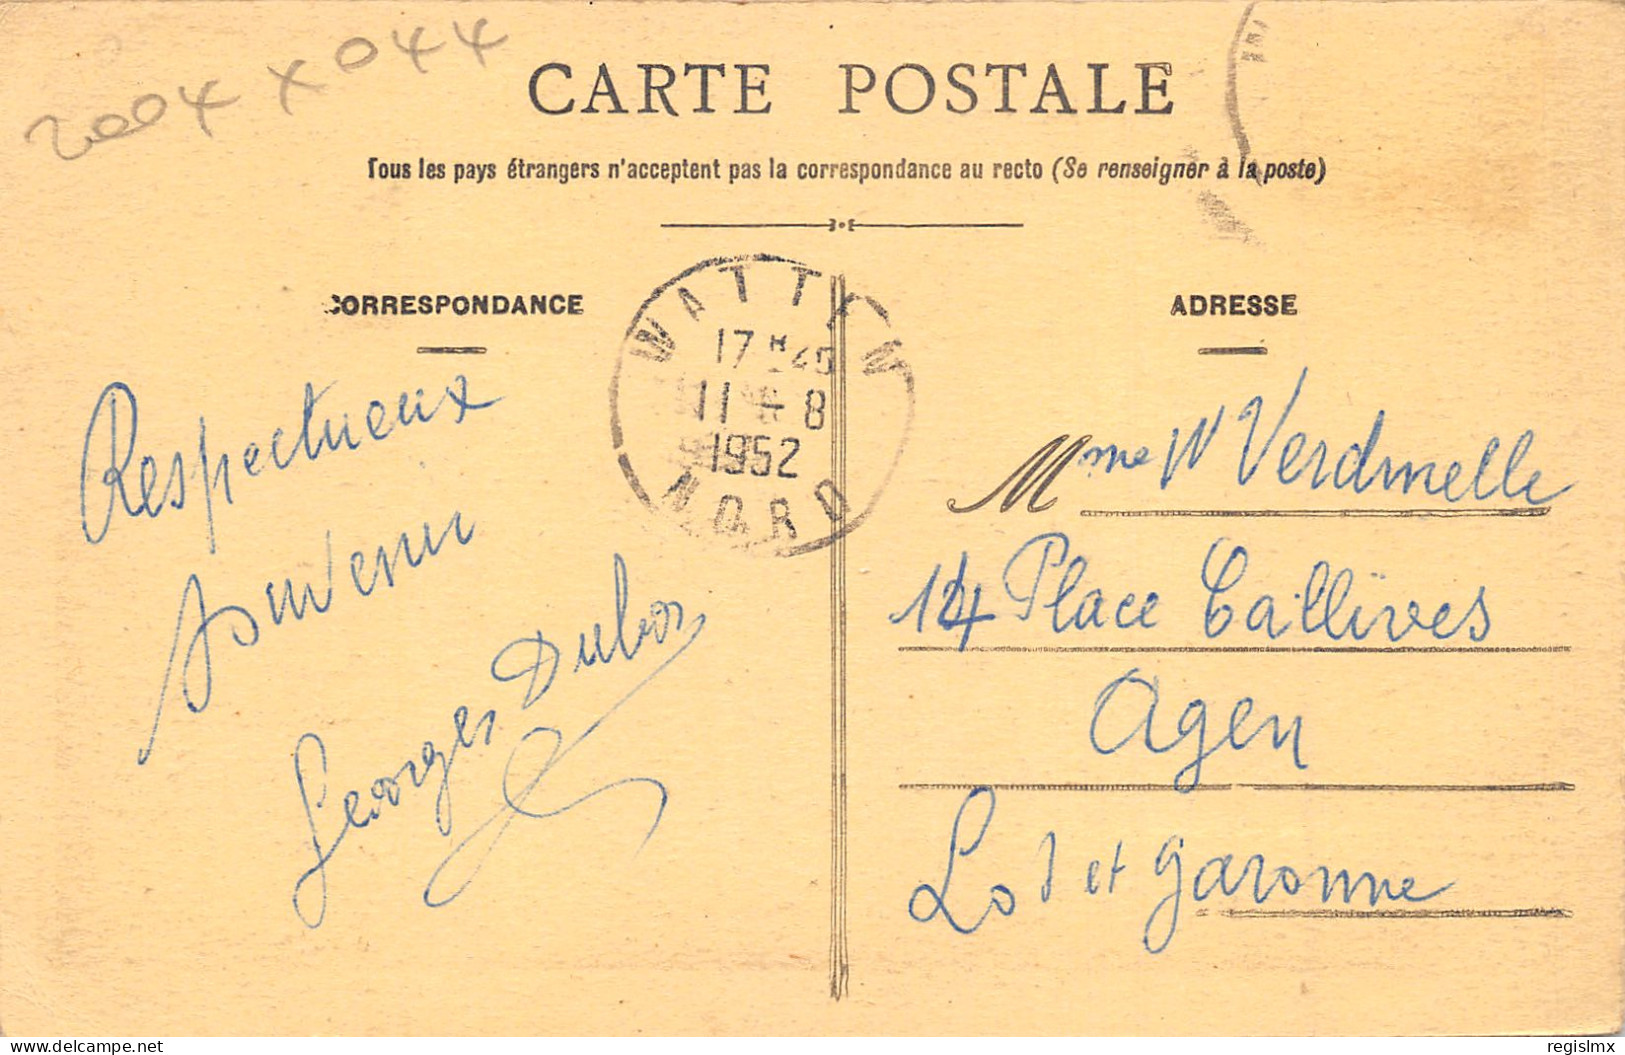 2004 x 044
CARTE POSTALE
Tous les pays étrangers n'acceptent pas la correspondance au recto (Se renseigner à la poste)
CORRESPONDANCE
ADRESSE
WATTEN
17 H 45
11 - 8
1952
NORD
Respectueux
souvenir
Georges Dubos
Mme W Verdmelle
14 Place Caillives
Agen
Lot et garonne
www.delcampe.net
regislmx